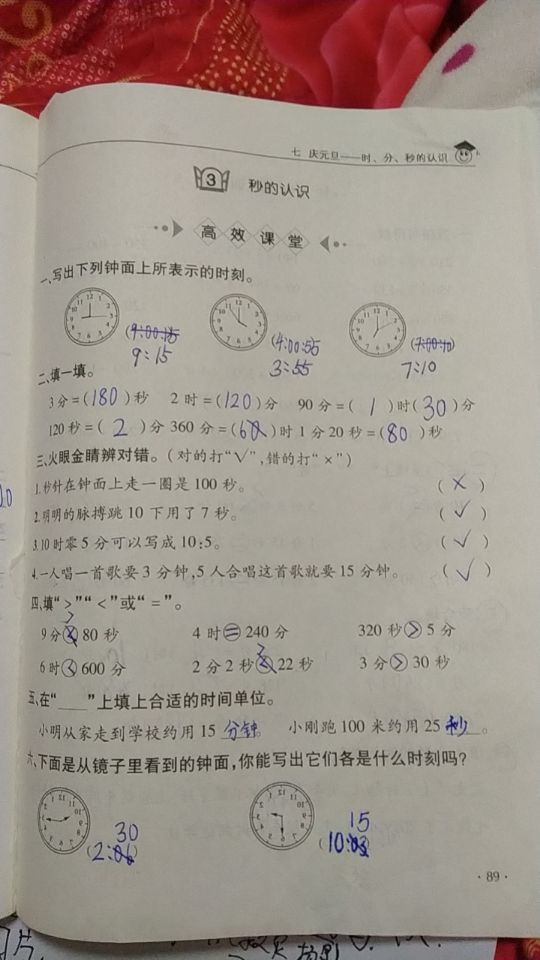 七 庆元旦——时、分、秒的认识
3 秒的认识
高效课堂
一、写出下列钟面上所表示的时刻。
(9:00:15) (4:00:55) (7:00:10)
9:15 3:55 7:10
二、填一填。
3分=(180)秒 2时=(120)分 90分=(1)时(30)分
120秒=(2)分 360分=(6)时 1分20秒=(80)秒
三、火眼金睛辨对错。(对的打“√”,错的打“×”)
1.秒针在钟面上走一圈是100秒。 (×)
2.明明的脉搏跳10下用了7秒。 (√)
3.10时零5分可以写成10:5。 (√)
4.一人唱一首歌要3分钟,5人合唱这首歌就要15分钟。 (√)
四、填“>”“<”或“=”。
9分>80秒 4时=240分 320秒>5分
6时<600分 2分2秒>22秒 3分>30秒
五、在“___”上填上合适的时间单位。
小明从家走到学校约用15 分钟。 小刚跑100米约用25 秒。
六、下面是从镜子里看到的钟面,你能写出它们各是什么时刻吗?
30 15
(2:06) (10:03)
·89·